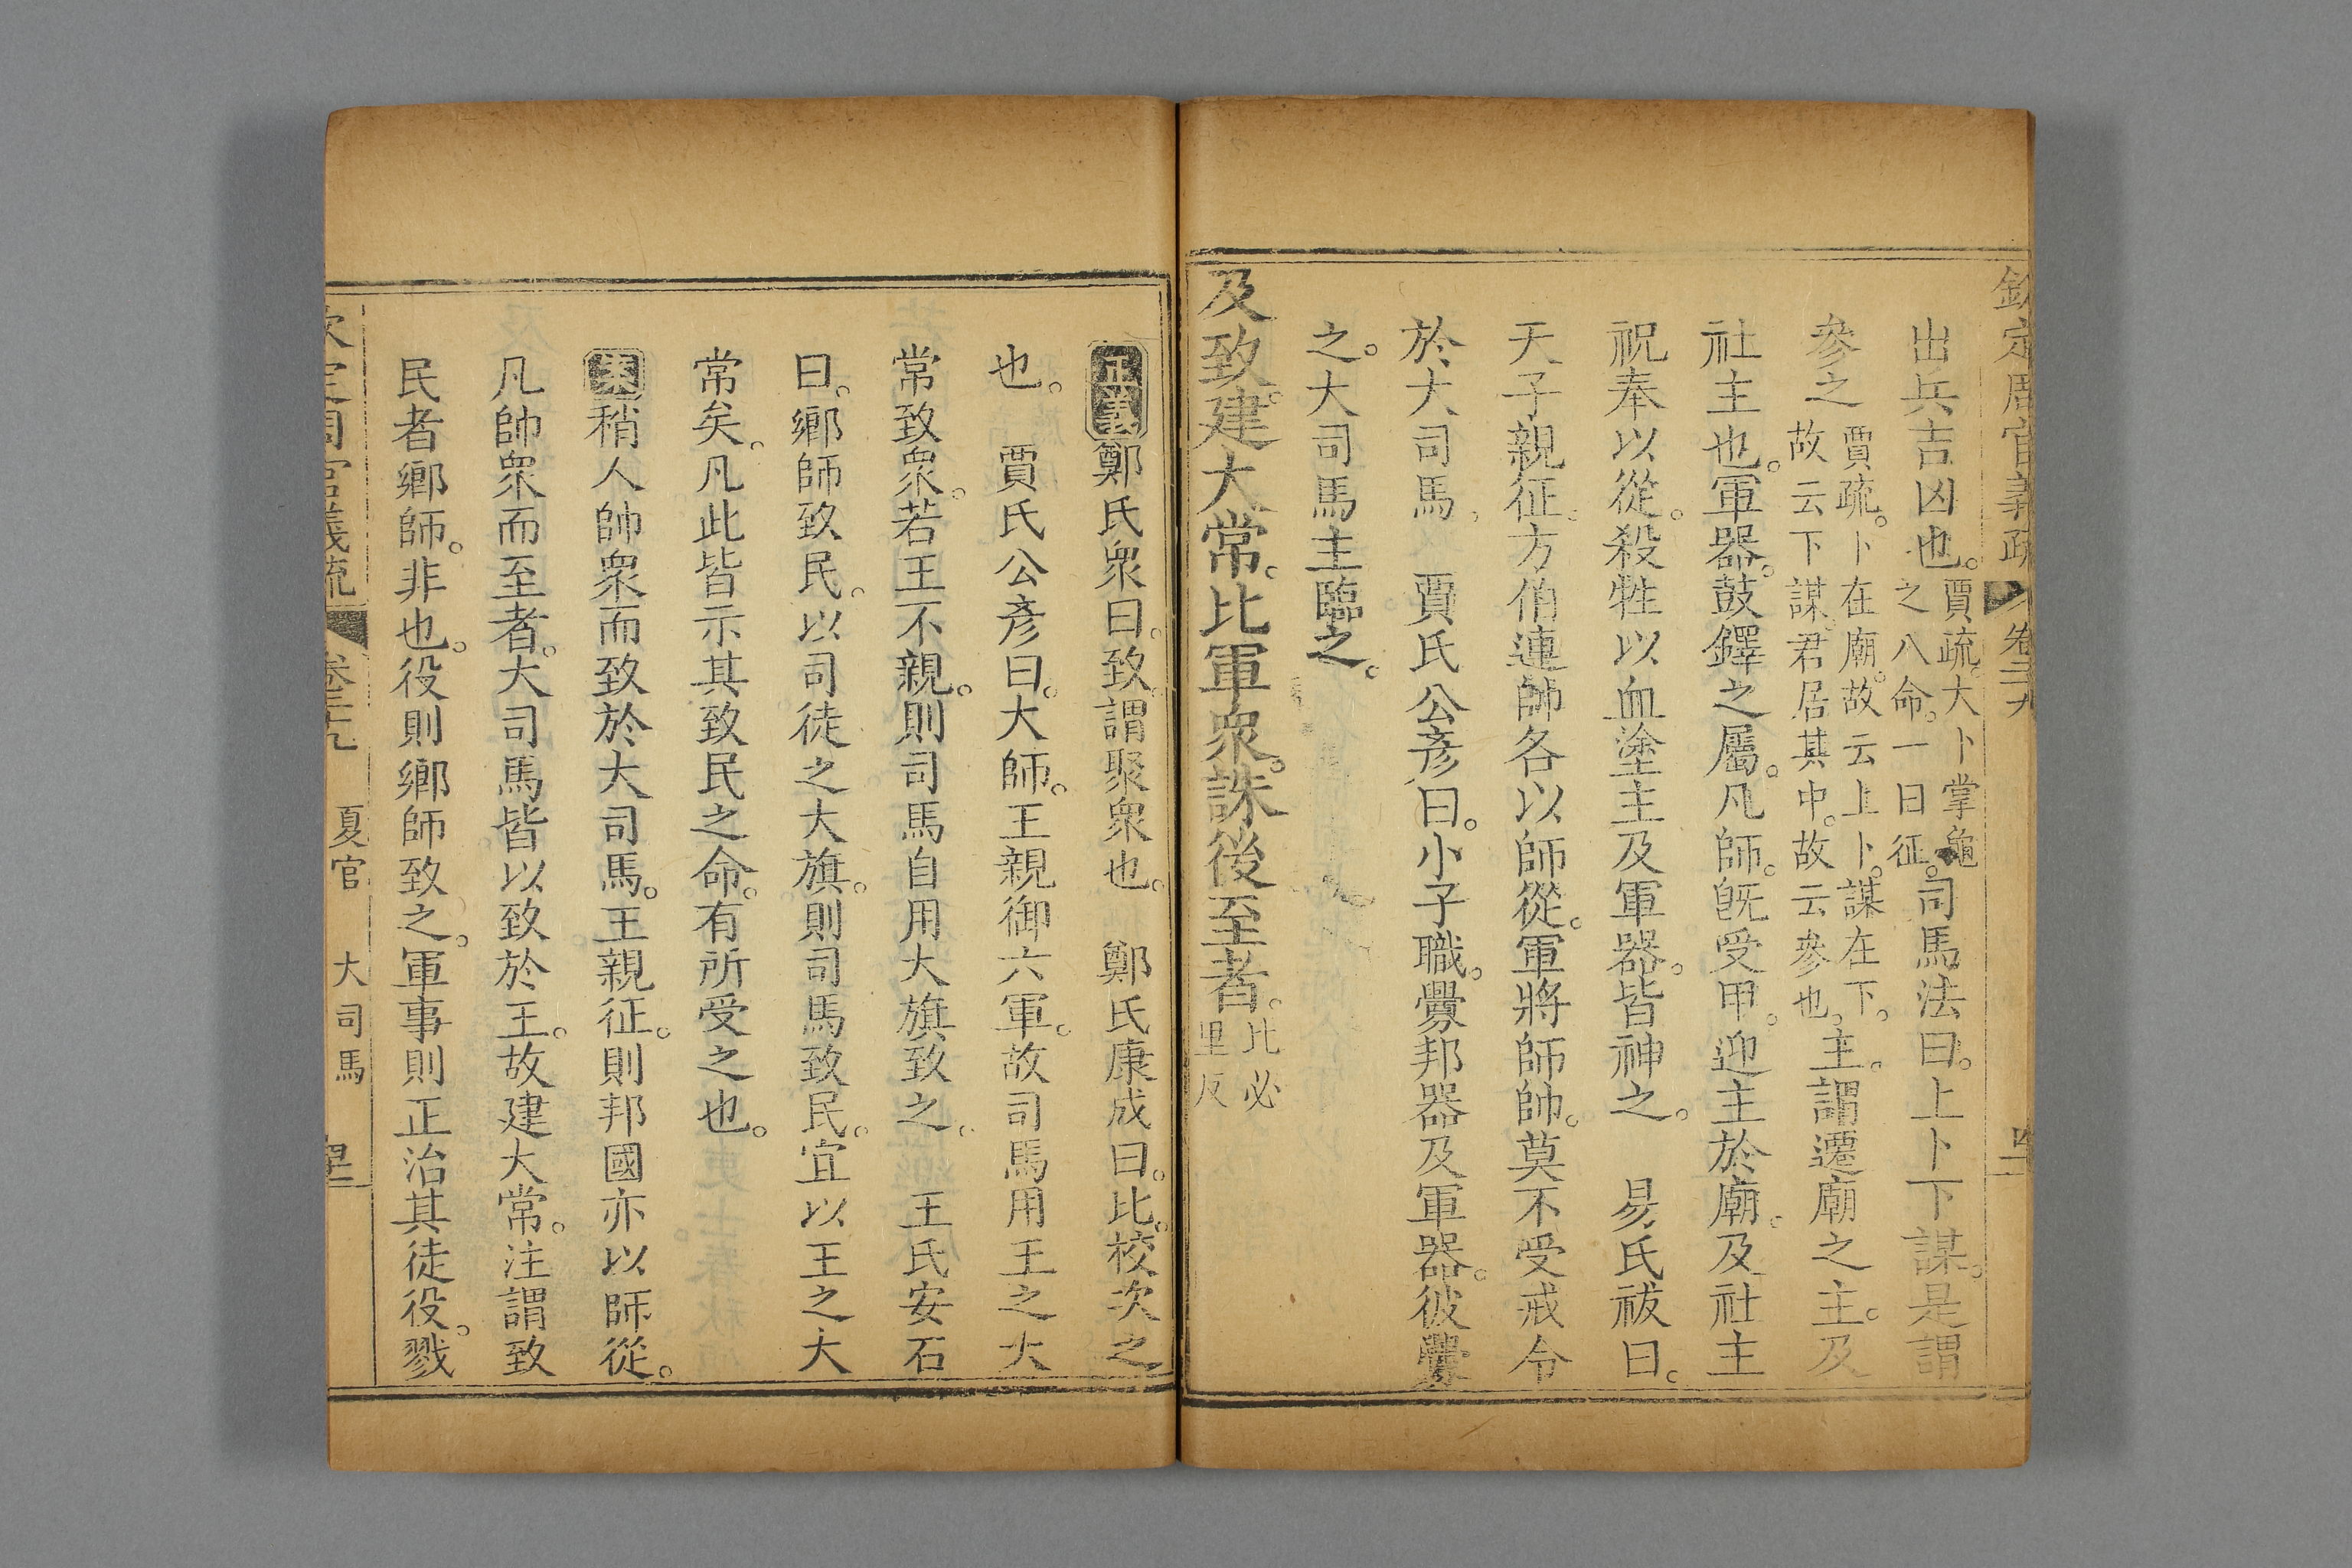 欽定周官義疏 卷二十九 
出兵吉凶也。賈疏。大卜掌龜之八命。一曰征。司馬法曰。上卜下謀。是謂
參之賈疏。卜在廟。故云上卜。謀在下。故云下謀。君居其中。故云參也。主。謂遷廟之主。及
社主也。軍器。鼓鐸之屬。凡師。旣受甲。迎主於廟。及社主
祝奉以從。殺牲以血塗主及軍器。皆神之。 易氏祓曰。
天子親征。方伯連帥各以師從。軍將師帥。莫不受戒令
於大司馬。 賈氏公彥曰。小子職。釁邦器及軍器。彼釁
之。大司馬主臨之。
及致。建大常。比軍衆。誅後至者。比必里反
正義鄭氏衆曰。致。謂聚衆也。 鄭氏康成曰。比。校次之
也。 賈氏公彥曰。大師。王親御六軍。故司馬用王之大
常致衆。若王不親。則司馬自用大旗致之。 王氏安石
曰。鄉師致民。以司徒之大旗。則司馬致民。宜以王之大
常矣。凡此皆示其致民之命。有所受之也。
案稍人帥衆而致於大司馬。王親征。則邦國亦以師從。
凡帥衆而至者。大司馬皆以致於王。故建大常。注謂致
民者鄉師。非也。役則鄉師致之。軍事則正治其徒役。戮
欽定周官義疏 卷二十九 夏官 大司馬